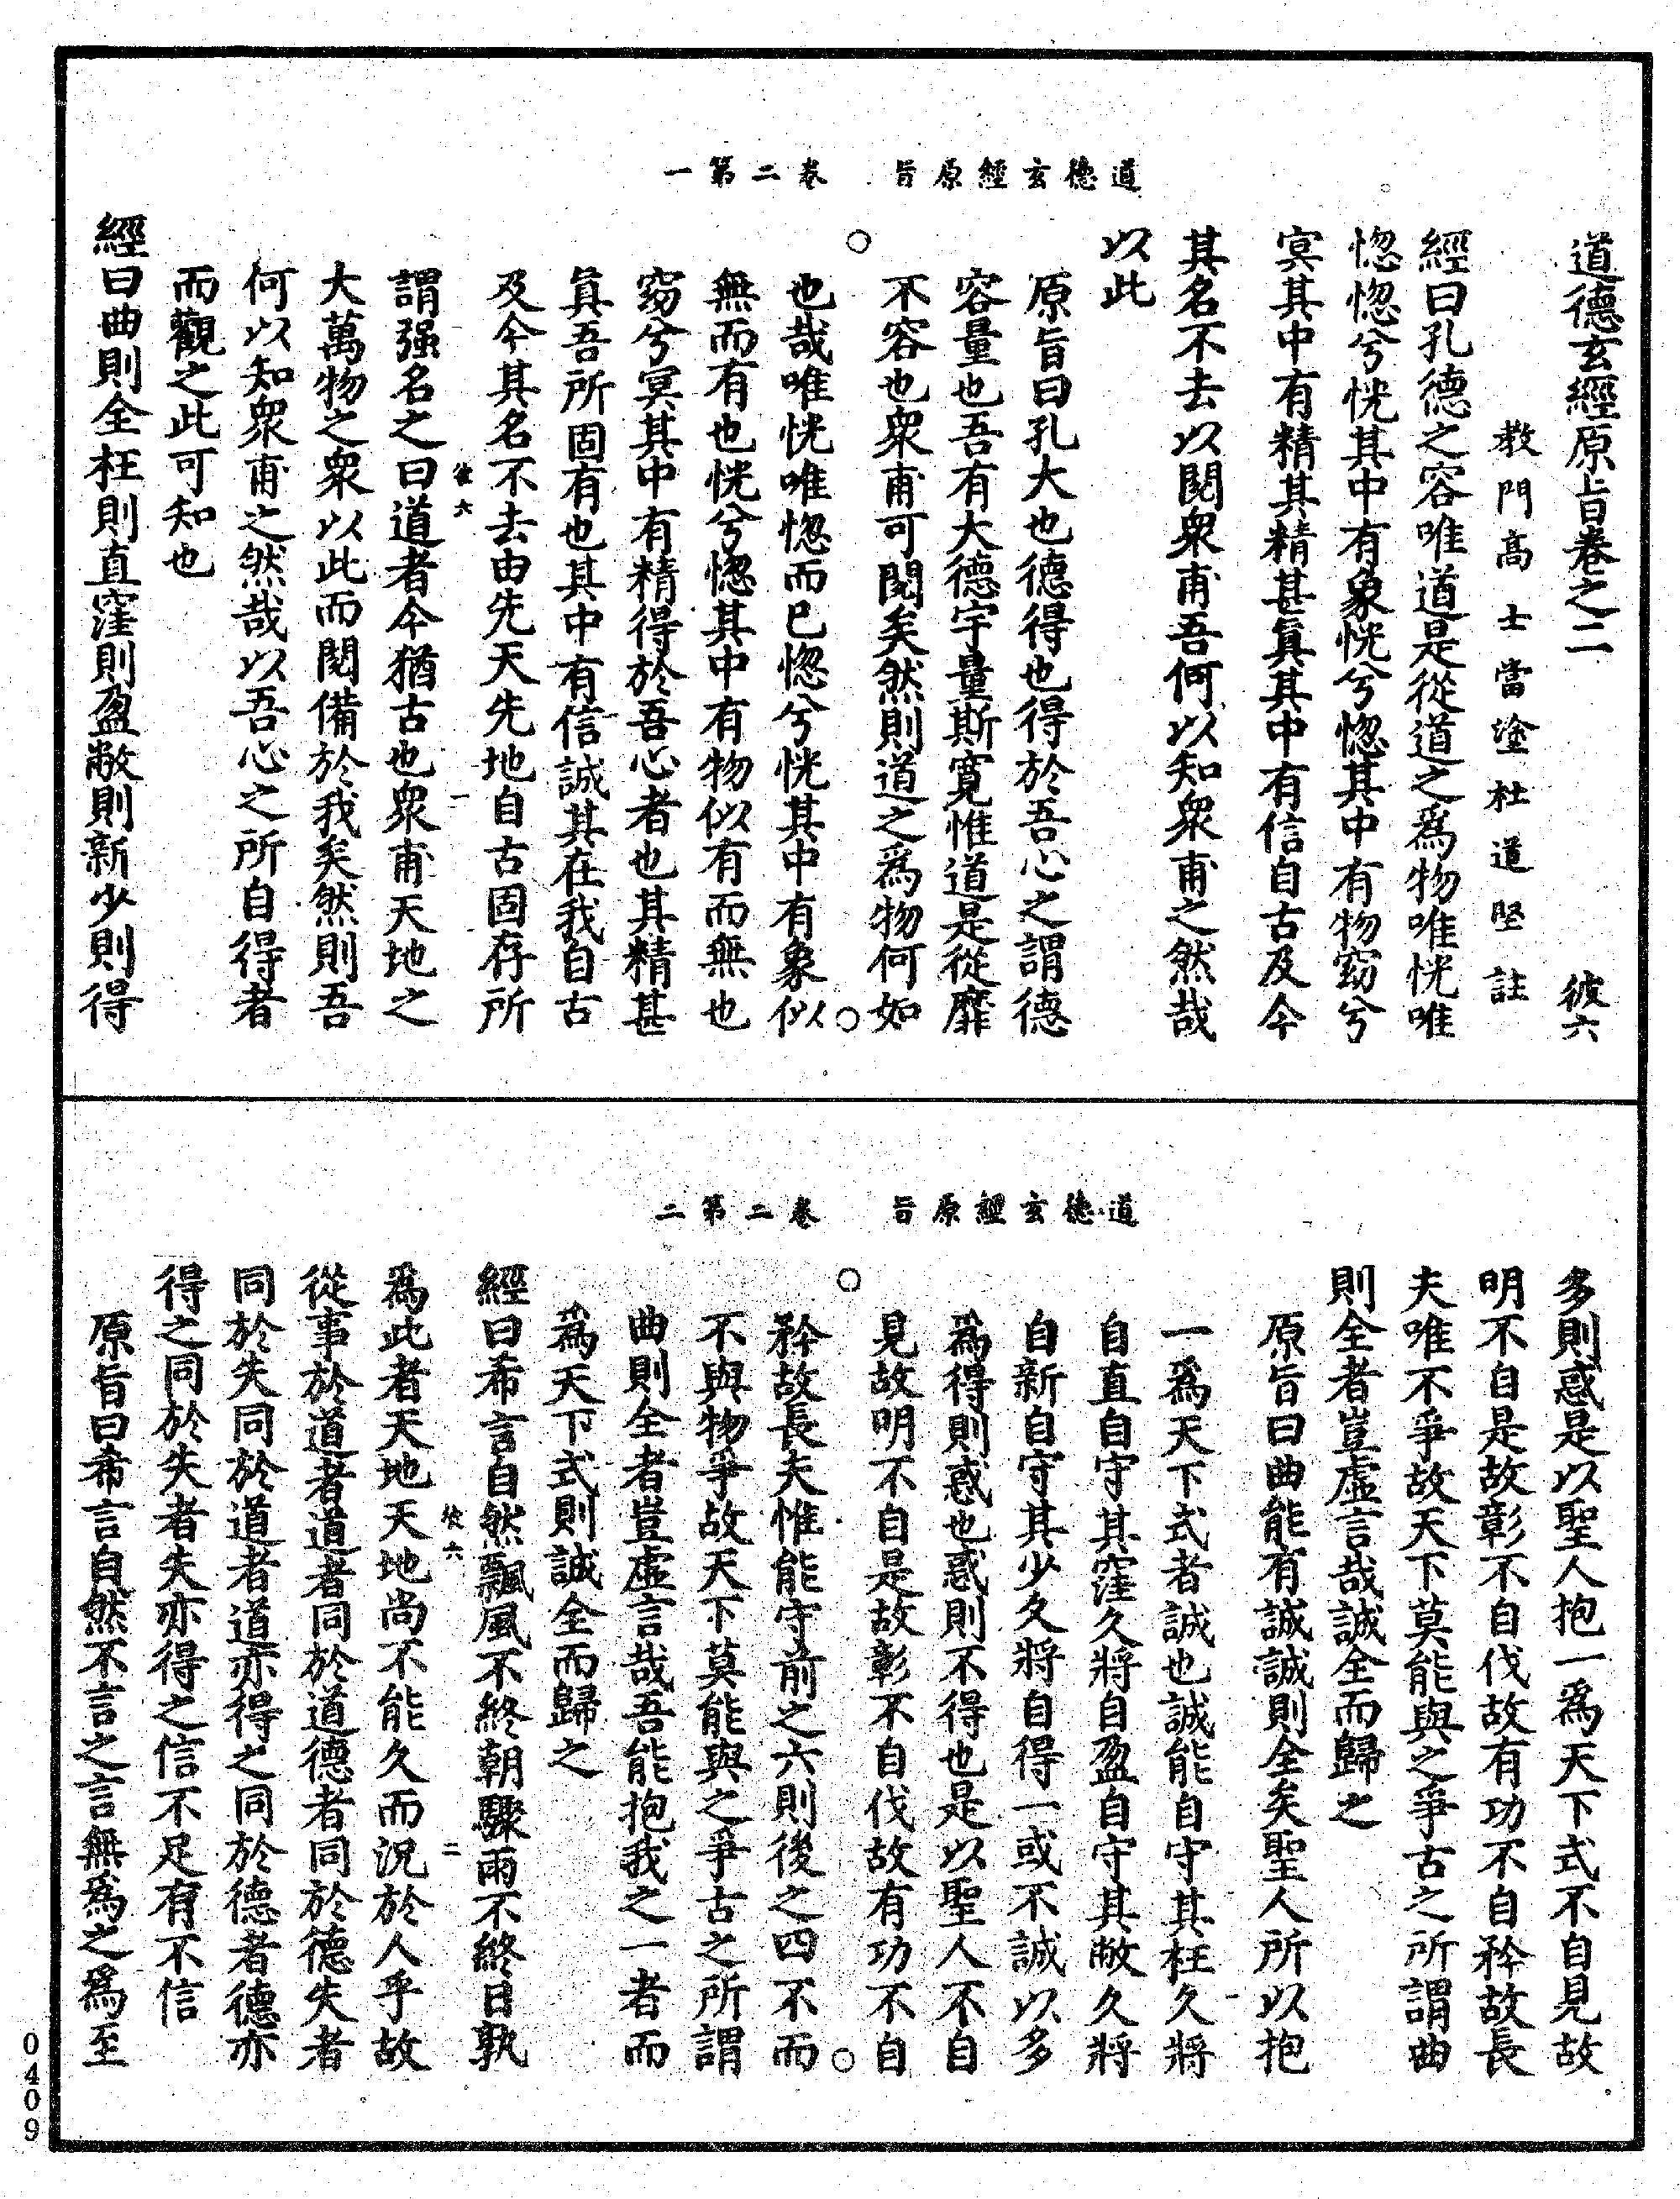 道德玄經原旨　卷二第一
道德玄經原旨卷之二　彼六
教門高士當塗杜道堅註
經曰孔德之容唯道是從道之爲物唯恍唯
惚惚兮恍其中有象恍兮惚其中有物窈兮
冥其中有精其精甚眞其中有信自古及今
其名不去以閱衆甫吾何以知衆甫之然哉
以此
原旨曰孔大也德得也得於吾心之謂德
容量也吾有大德宇量斯寬惟道是從靡
不容也衆甫可閱矣然則道之爲物何如
也哉唯恍唯惚而已惚兮恍其中有象似
無而有也恍兮惚其中有物似有而無也
窈兮冥其中有精得於吾心者也其精甚
眞吾所固有也其中有信誠其在我自古
及今其名不去由先天先地自古固存所
彼六　一
謂强名之曰道者今猶古也衆甫天地之
大萬物之衆以此而閱備於我矣然則吾
何以知衆甫之然哉以吾心之所自得者
而觀之此可知也
經曰曲則全枉則直窪則盈敝則新少則得
道德玄經原旨　卷二第二
多則惑是以聖人抱一爲天下式不自見故
明不自是故彰不自伐故有功不自矜故長
夫唯不爭故天下莫能與之爭古之所謂曲
則全者豈虛言哉誠全而歸之
原旨曰曲能有誠誠則全矣聖人所以抱
一爲天下式者誠也誠能自守其枉久將
自直自守其窪久將自盈自守其敝久將
自新自守其少久將自得一或不誠以多
爲得則惑也惑則不得也是以聖人不自
見故明不自是故彰不自伐故有功不自
矜故長夫惟能守前之六則後之四不而
不與物爭故天下莫能與之爭古之所謂
曲則全者豈虛言哉吾能抱我之一者而
爲天下式則誠全而歸之
經曰希言自然飄風不終朝驟雨不終日孰
彼六　二
爲此者天地天地尚不能久而況於人乎故
從事於道者道者同於道德者同於德失者
同於失同於道者道亦得之同於德者德亦
得之同於失者失亦得之信不足有不信
原旨曰希言自然不言之言無爲之爲至
0409